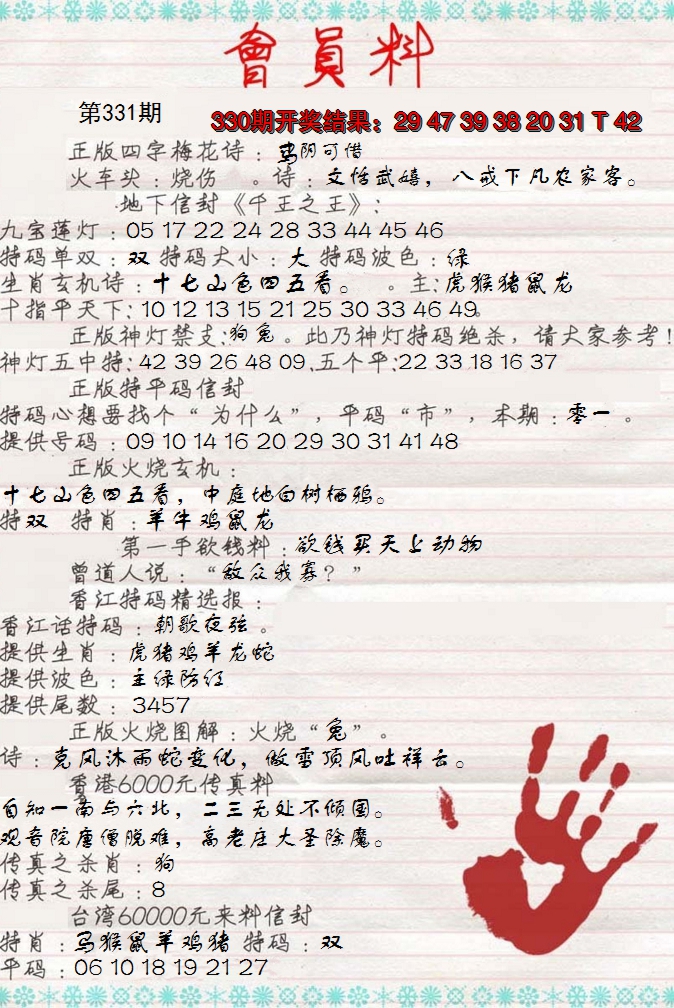 會員料
第331期
330期开奖结果：29 47 39 38 20 31 T 42
正版四字梅花诗：寸阴可惜
火车头：烧伤 。诗：文恬武嬉，八戒下凡农家客。
地下信封《千王之王》：
九宝莲灯：05 17 22 24 28 33 44 45 46
特码单双：双 特码大小：大 特码波色：绿
生肖玄机诗：十七山色四五看。 。主：虎猴猪鼠龙
十指平天下：10 12 13 15 21 25 30 33 46 49。
正版神灯禁支：狗兔。此乃神灯特码绝杀，请大家参考！
神灯五中特：42 39 26 48 09.五个平：22 33 18 16 37
正版特平码信封
特码心想要找个“为什么”，平码“市”，本期：零一 。
提供号码：09 10 14 16 20 29 30 31 41 48
正版火烧玄机：
十七山色四五看，中庭地白树栖鸦。
特双 特肖：羊牛鸡鼠龙
第一手欲钱料：欲钱买天上动物
曾道人说：“敌众我寡？”
香江特码精选报：
香江话特码：朝歌夜弦。
提供生肖：虎猪鸡羊龙蛇
提供波色：主绿防红
提供尾数：3457
正版火烧图解：火烧“兔”。
诗：克风沐雨蛇变化，傲雪顶风吐祥云。
香港6000元传真料
自知一南与六北，二三无处不倾国。
观音院唐僧脱难，高老庄大圣除魔。
传真之杀肖：狗
传真之杀尾：8
台湾60000元来料信封
特肖：马猴鼠羊鸡猪 特码：双
平码：06 10 18 19 21 27